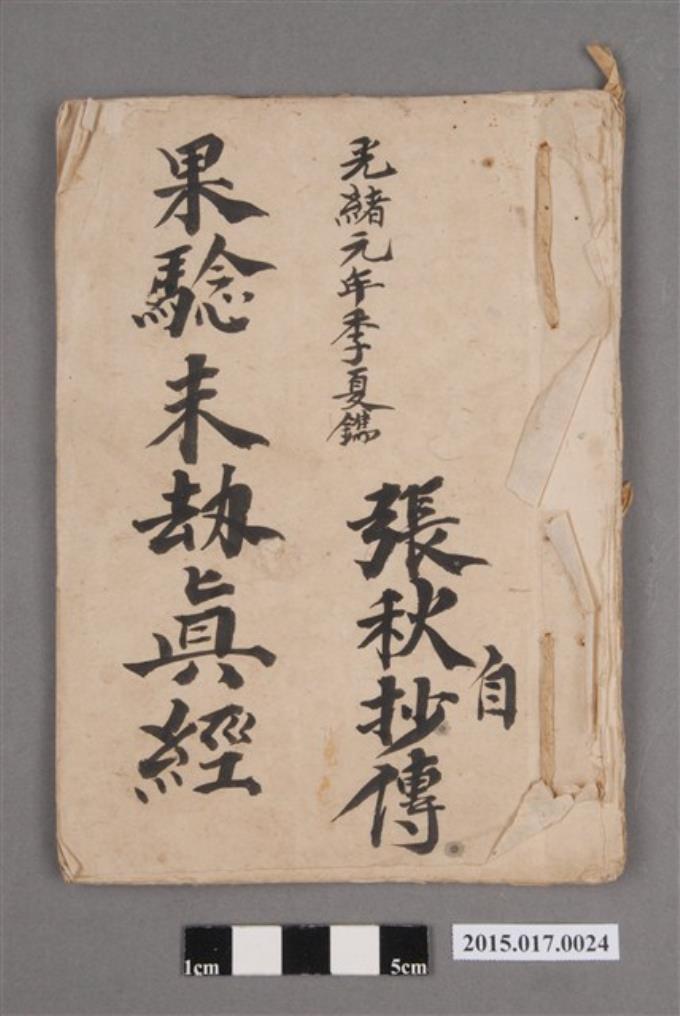 張秋抄傳
自
光緒元年季夏鐫
果騐末劫眞經
1cm
5cm
2015.017.0024